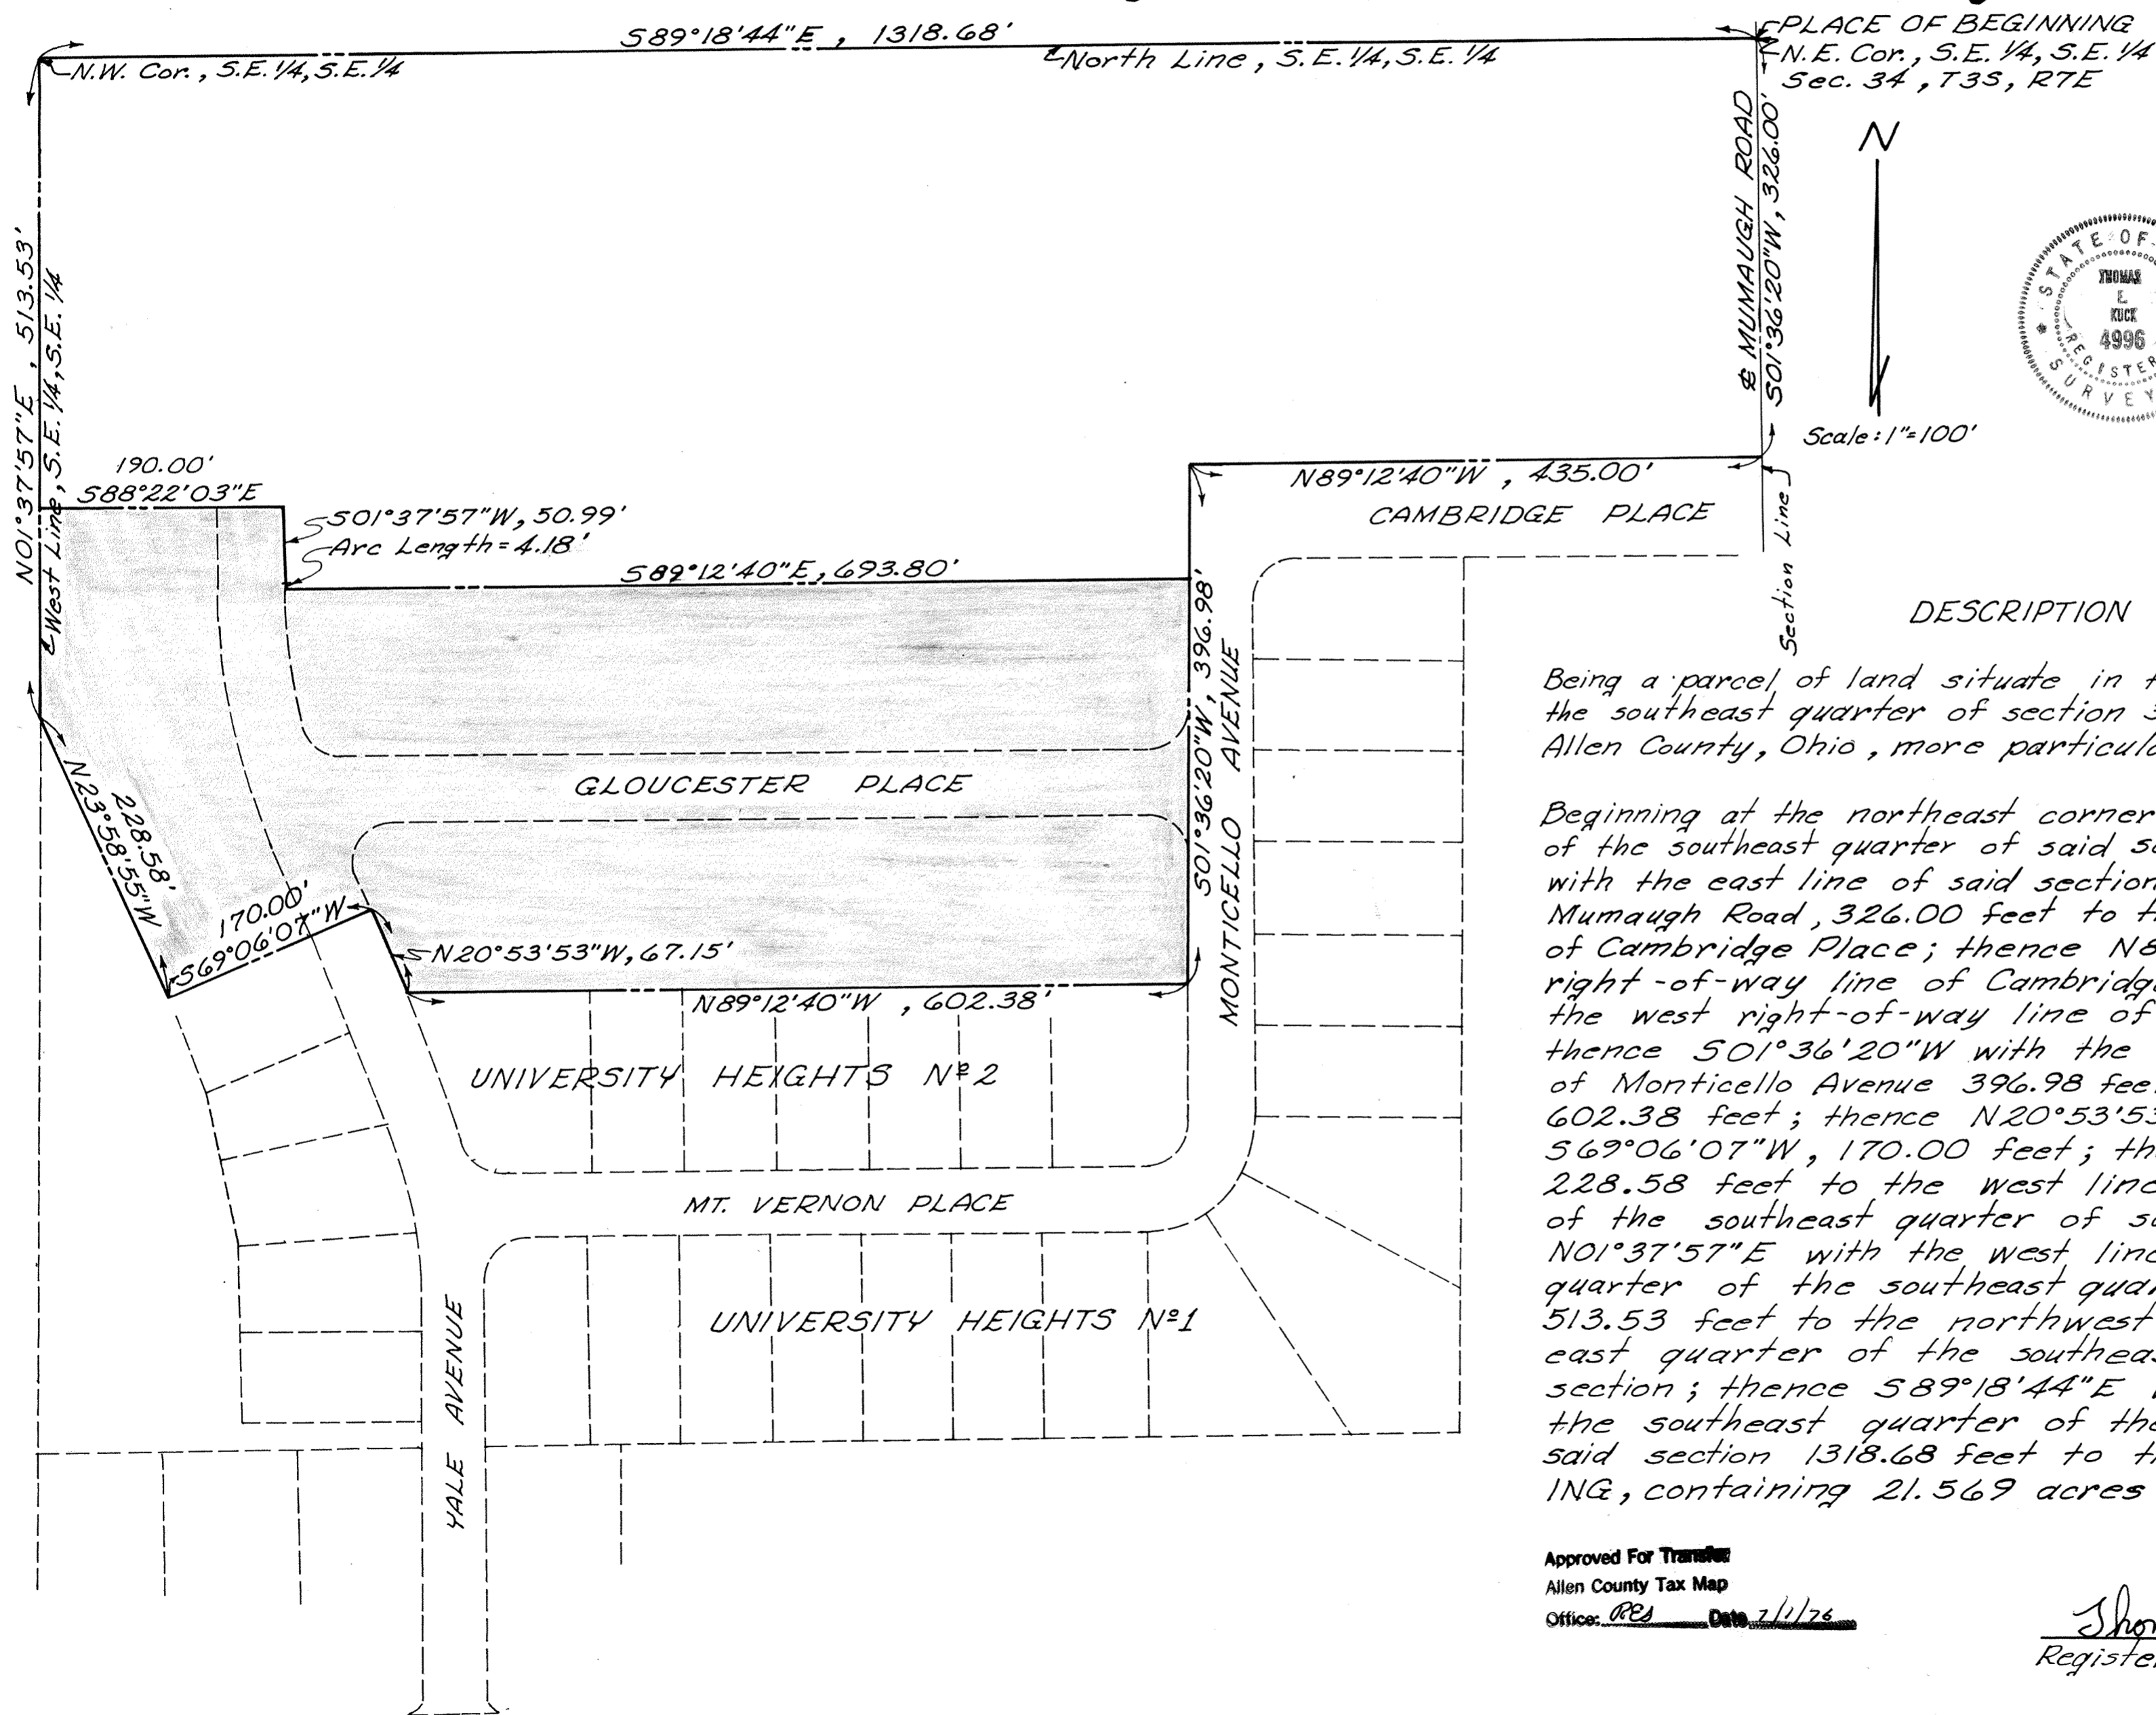 S89°18'44"E, 1318.68'
PLACE OF BEGINNING
N.W. Cor., S.E. 1/4, S.E. 1/4
North Line, S.E. 1/4, S.E. 1/4
N.E. Cor., S.E. 1/4, S.E. 1/4
Sec. 34, T3S, R7E
N
℄ MUMAUGH ROAD
S01°36'20"W, 326.00'
STATE OF
THOMAS
E.
KUCK
4996
REGISTER
SURVEY
Scale: 1"=100'
N01°37'57"E, 513.53'
West Line, S.E. 1/4, S.E. 1/4
190.00'
S88°22'03"E
S01°37'57"W, 50.99'
Arc Length=4.18'
S89°12'40"E, 693.80'
N89°12'40"W, 435.00'
CAMBRIDGE PLACE
Section Line
S01°36'20"W, 396.98'
MONTICELLO AVENUE
GLOUCESTER PLACE
228.58'
N23°58'55"W
170.00'
S69°06'07"W
N20°53'53"W, 67.15'
N89°12'40"W, 602.38'
UNIVERSITY HEIGHTS Nº2
MT. VERNON PLACE
UNIVERSITY HEIGHTS Nº1
YALE AVENUE
DESCRIPTION
Being a parcel of land situate in
the southeast quarter of section
Allen County, Ohio, more
Beginning at the northeast corner
of the southeast quarter of said
with the east line of said section
Mumaugh Road, 326.00 feet to
of Cambridge Place; thence
right-of-way line of
the west right-of-way line of
thence S01°36'20"W with the
of Monticello Avenue 396.98
602.38 feet; thence N20°53'53
S69°06'07"W, 170.00 feet;
228.58 feet to the west line
of the southeast quarter of
N01°37'57"E with the west
quarter of the southeast
513.53 feet to the northwest
east quarter of the
section; thence S89°18'44"E
the southeast quarter of
said section 1318.68 feet to
ING, containing 21.569 acres
Approved For Transfer
Allen County Tax Map
Office: RES Date 7/1/76